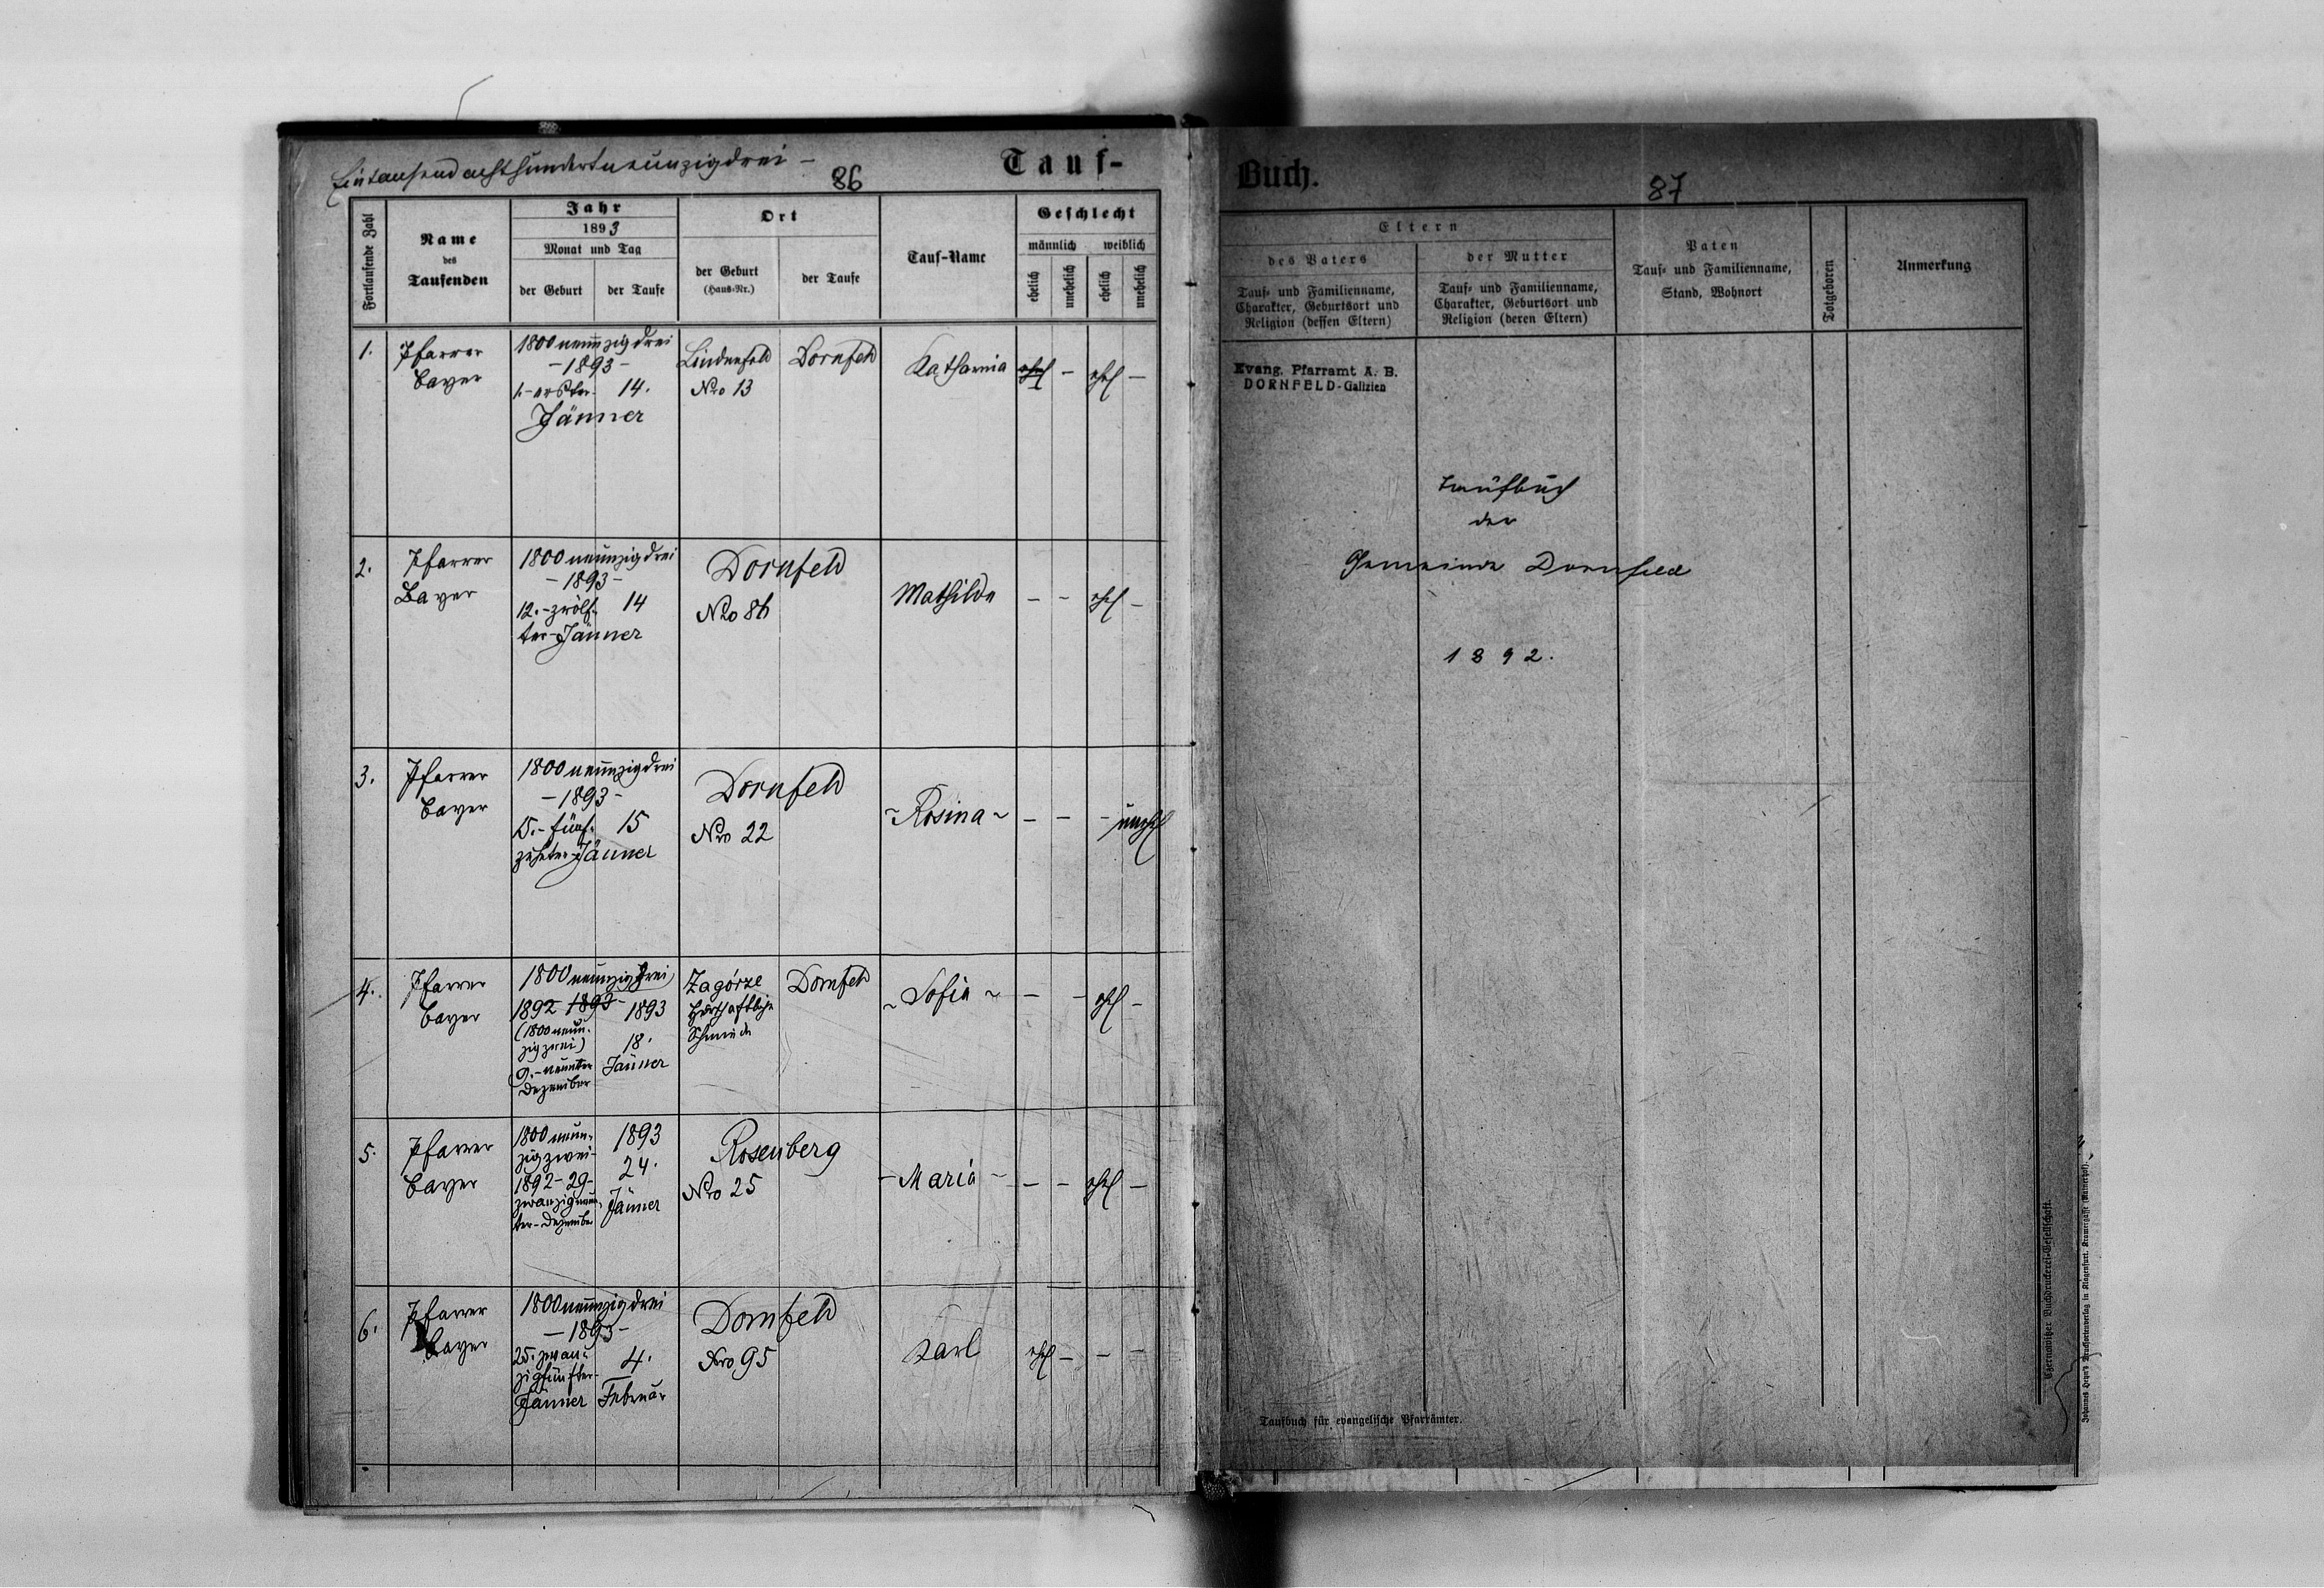 Eintausendachthundertneunzigdrei –
86
Tauf-
Fortlaufende Zahl
Name
des
Taufenden
Jahr
1893
Monat und Tag
der Geburt
der Taufe
Ort
der Geburt
(Haus-Nr.)
der Taufe
Tauf-Name
Geschlecht
männlich
weiblich
ehelich
unehelich
ehelich
unehelich
1. Pfarrer
Bayer
1800 neunzigdrei
– 1893 –
1. – erster 14.
Jänner
Lindenfeld
Nro 13
Dornfeld
Katharina
ehel – ehel –
2. Pfarrer
Bayer
1800 neunzigdrei
– 1893 –
12. – zwölf- 14
ter – Jänner
Dornfeld
Nro 86
Mathilde
– – ehel –
3. Pfarrer
Bayer
1800 neunzigdrei
– 1893 –
15. – fünf- 15
zehnter – Jänner
Dornfeld
Nro 22
~ Rosina ~
– – – unehel
4. Pfarrer
Bayer
1800 neunzigdrei
1892 1893 – 1893
(1800 neun-
zigzwei)
9. – neunter
Dezember
18.
Jänner
Zagórze
Herrschaftliche
Schmiede
Dornfeld
~ Sofia ~
– – ehel –
5. Pfarrer
Bayer
1800 neun-
zigzwei –
1892 – 29 –
zwanzigneun-
ter – Dezember
1893
24.
Jänner
Rosenberg
Nro 25
– Maria –
– – ehel –
6. Pfarrer
Bayer
1800 neunzigdrei
– 1893 –
25. zwan-
zigfünfter –
Jänner
4.
Februar
Dornfeld
Nro 95
Karl
ehel – – –
Buch.
87
Eltern
des Vaters
Tauf- und Familienname,
Charakter, Geburtsort und
Religion (dessen Eltern)
der Mutter
Tauf- und Familienname,
Charakter, Geburtsort und
Religion (deren Eltern)
Paten
Tauf- und Familienname,
Stand, Wohnort
Totgeboren
Anmerkung
Evang. Pfarramt A. B.
DORNFELD-Galizien
Taufbuch
der
Gemeinde Dornfeld
1892.
Taufbuch für evangelische Pfarrämter.
Czernowitzer Buchdruckerei-Gesellschaft.
Johannes Heyn's Drucksortenverlag in Klagenfurt, Kramergasse